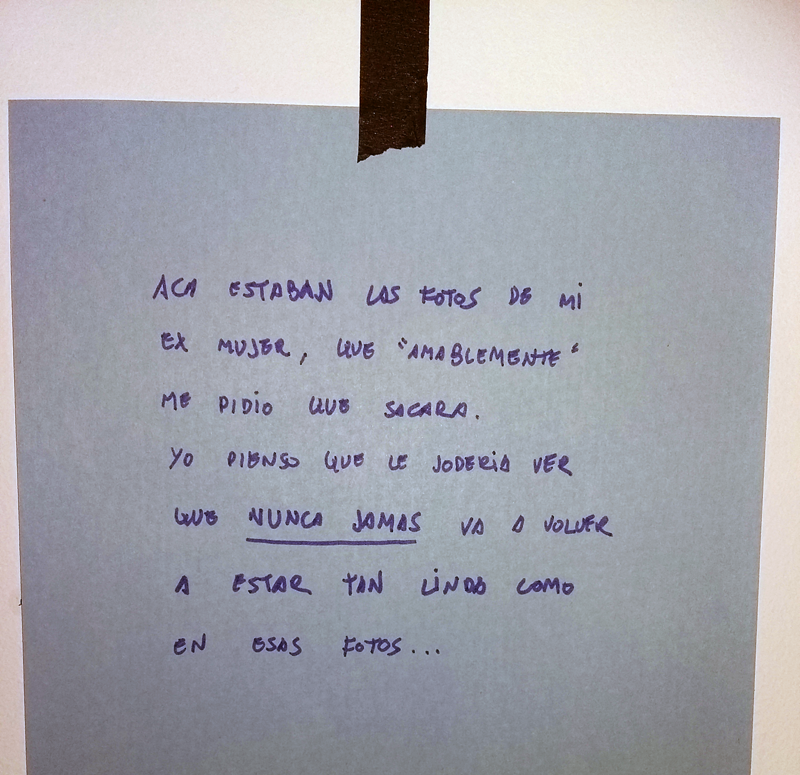 ACA ESTABAN LAS FOTOS DE MI
EX MUJER, QUE "AMABLEMENTE"
ME PIDIO QUE SACARA.
YO PIENSO QUE LE JODERIA VER
QUE NUNCA JAMAS VA A VOLVER
A ESTAR TAN LINDA COMO
EN ESAS FOTOS...